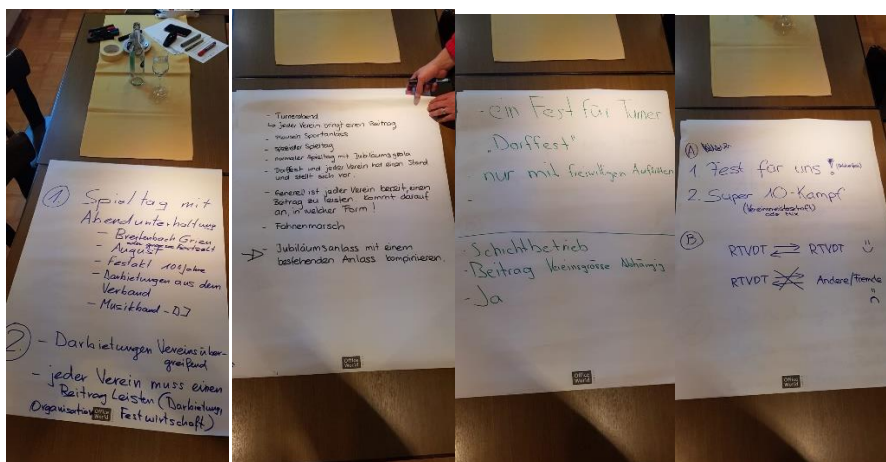 ① Spieltag mit
Abendunterhaltung
- Breitenbach Grien
August
- Festakt 10 Jahre
- Darbietungen aus dem
Verband
- Musikband - DJ
2. - Darbietungen Vereinsüber-
greifend
- jeder Verein muss einen
Beitrag Leisten (Darbietung,
Organisation Festwirtschaft)
Office
World
- Turnerabend
↳ jeder Verein bringt einen Beitrag
- Sportanlass
- spezieller Spieltag
- normaler Spieltag mit Jubiläumsgala
- Dorffest und jeder Verein hat einen Stand
und stellt sich vor.
- Generell ist jeder Verein bereit, einen
Beitrag zu leisten kommt darauf
an, in welcher Form!
- Fahnenmarsch
- Jubiläumsanlass mit einem
bestehenden Anlass kompinieren.
Office
World
- ein Fest für Turner
"Dorffest"
nur mit freiwilligen Auftritten
-
- Schichtbetrieb
- Beitrag Vereinsgrösse Abhängig
- Ja
Office
World
Ⓐ
1 Fest für uns!
2. Super 10-Kampf
Ⓑ
RTVDT ⇄ RTVDT
RTVDT Andere/Fremde
Office
World